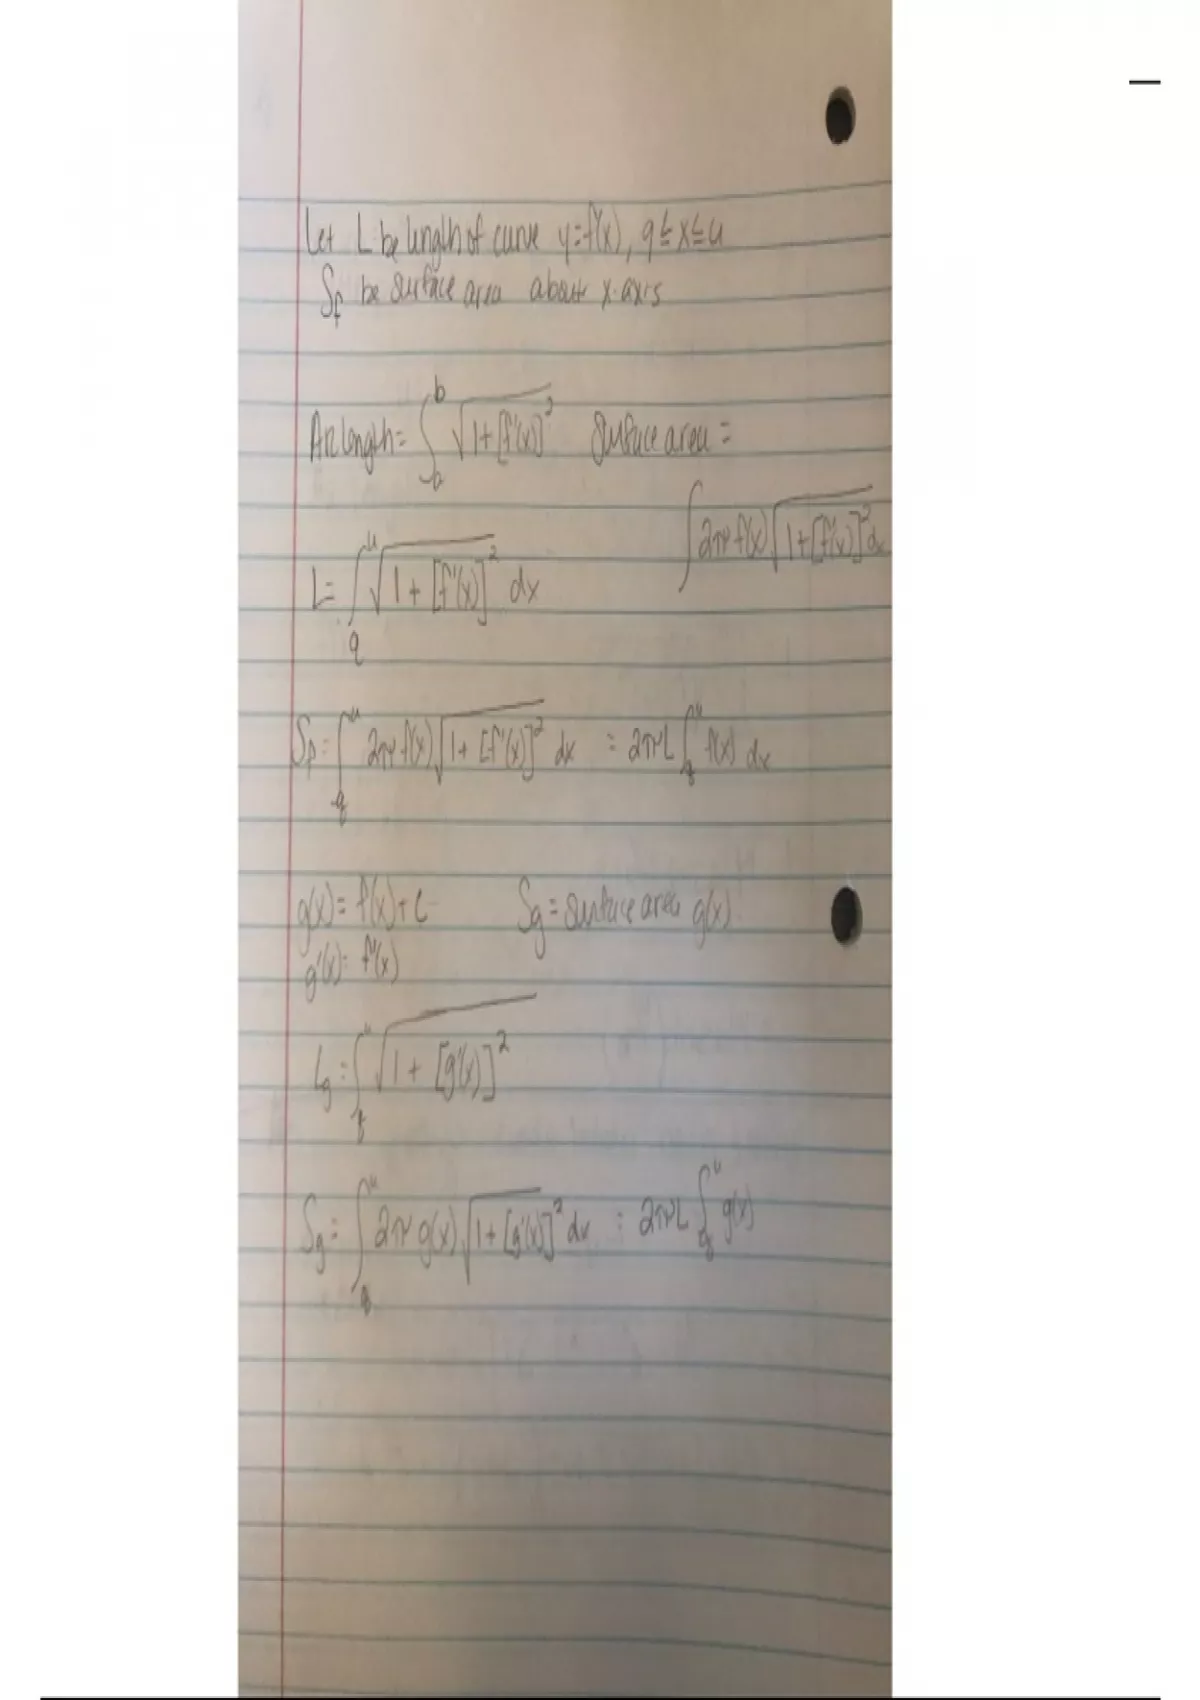 Let L be length of curve y=f(x), q≤x≤u
Sf be surface area about x-axis
Arc length = ∫_a^b √1+[f'(x)]² Surface area =
∫ 2π f(x) √1+[f'(x)]² dx
L= ∫_q^u √1+[f'(x)]² dx
Sf = ∫_q^u 2π f(x) √1+[f'(x)]² dx = 2πL ∫_q^u f(x) dx
g(x) = f(x)+C Sg = surface area g(x)
g'(x) = f'(x)
Lg = ∫_t^u √1+[g'(x)]²
Sg = ∫_q^u 2π g(x) √1+[g'(x)]² dx = 2πL ∫_q^u g(x)